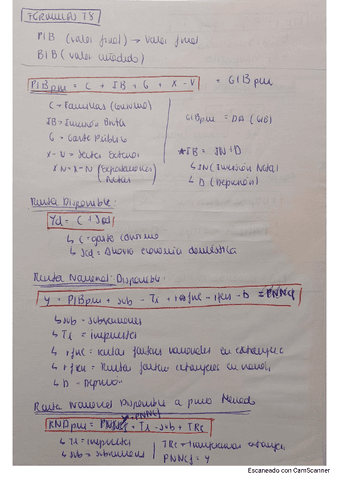 FORMULAS T8
PIB (valor final) → valor final
BIB (valor añadido)
PIBpm = C + IB + G + X - V = GIBpm
C = Familias (consumo)
IB = Inversión Bruta
G = Gasto Público
X - V = Sector Exterior
XN = X - N (Exportaciones Netas)
GIBpm = DA (
*IB = IN + D
↳ IN (Inversión Neta)
↳ D (Depreción)
Renta Disponible:
Yd = C + Sd
↳ C = gasto consumo
↳ Sd = Ahorro economía doméstica
Renta Nacional Disponible:
Y = PIBpm + sub - Ti + rfnc - rfen - D = PNNcf
↳ sub = subvenciones
↳ Ti = impuestos
↳ rfnc = rentas factores nacionales en extranjero
↳ rfen = Renta factores extranjeros en nación
↳ D = Deprecio
Renta Nacional Disponible a precio Mercado
RNDpm = PNNcf + Ti - sub + TRe
↳ Ti = impuestos
↳ sub = subvenciones
TRe = transferencias extranjero
PNNcf = Y
Escaneado con CamScanner